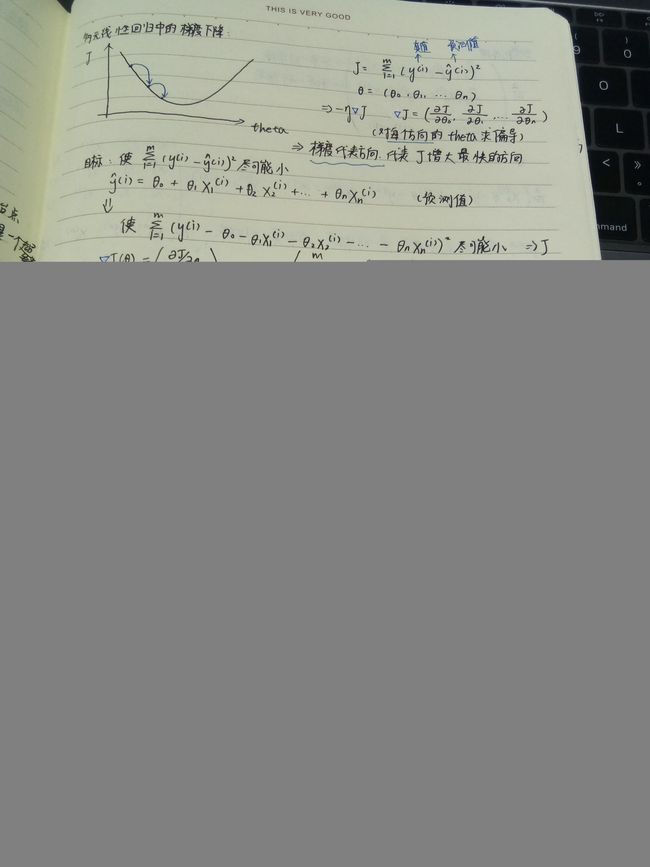 THIS IS VERY GOOD
多元线性回归中的梯度下降:
J
theta
真值 预测值
J = Σᵢ₌₁ᵐ (y⁽ⁱ⁾ - ŷ⁽ⁱ⁾)²
θ = (θ₀, θ₁, ... θₙ)
⇒ -η∇J ∇J = (∂J/∂θ₀, ∂J/∂θ₁, ... ∂J/∂θₙ)
(对每个方向的 theta 求偏导)
⇒ 梯度代表方向. 代表 J 增大最快的方向
目标: 使 Σᵢ₌₁ᵐ (y⁽ⁱ⁾ - ŷ⁽ⁱ⁾)² 尽可能小
ŷ⁽ⁱ⁾ = θ₀ + θ₁X₁⁽ⁱ⁾ + θ₂X₂⁽ⁱ⁾ + ... + θₙXₙ⁽ⁱ⁾ (预测值)
⇓
使 Σᵢ₌₁ᵐ (y⁽ⁱ⁾ - θ₀ - θ₁X₁⁽ⁱ⁾ - θ₂X₂⁽ⁱ⁾ - ... - θₙXₙ⁽ⁱ⁾)² 尽可能小 ⇒ J
∇J(θ) =